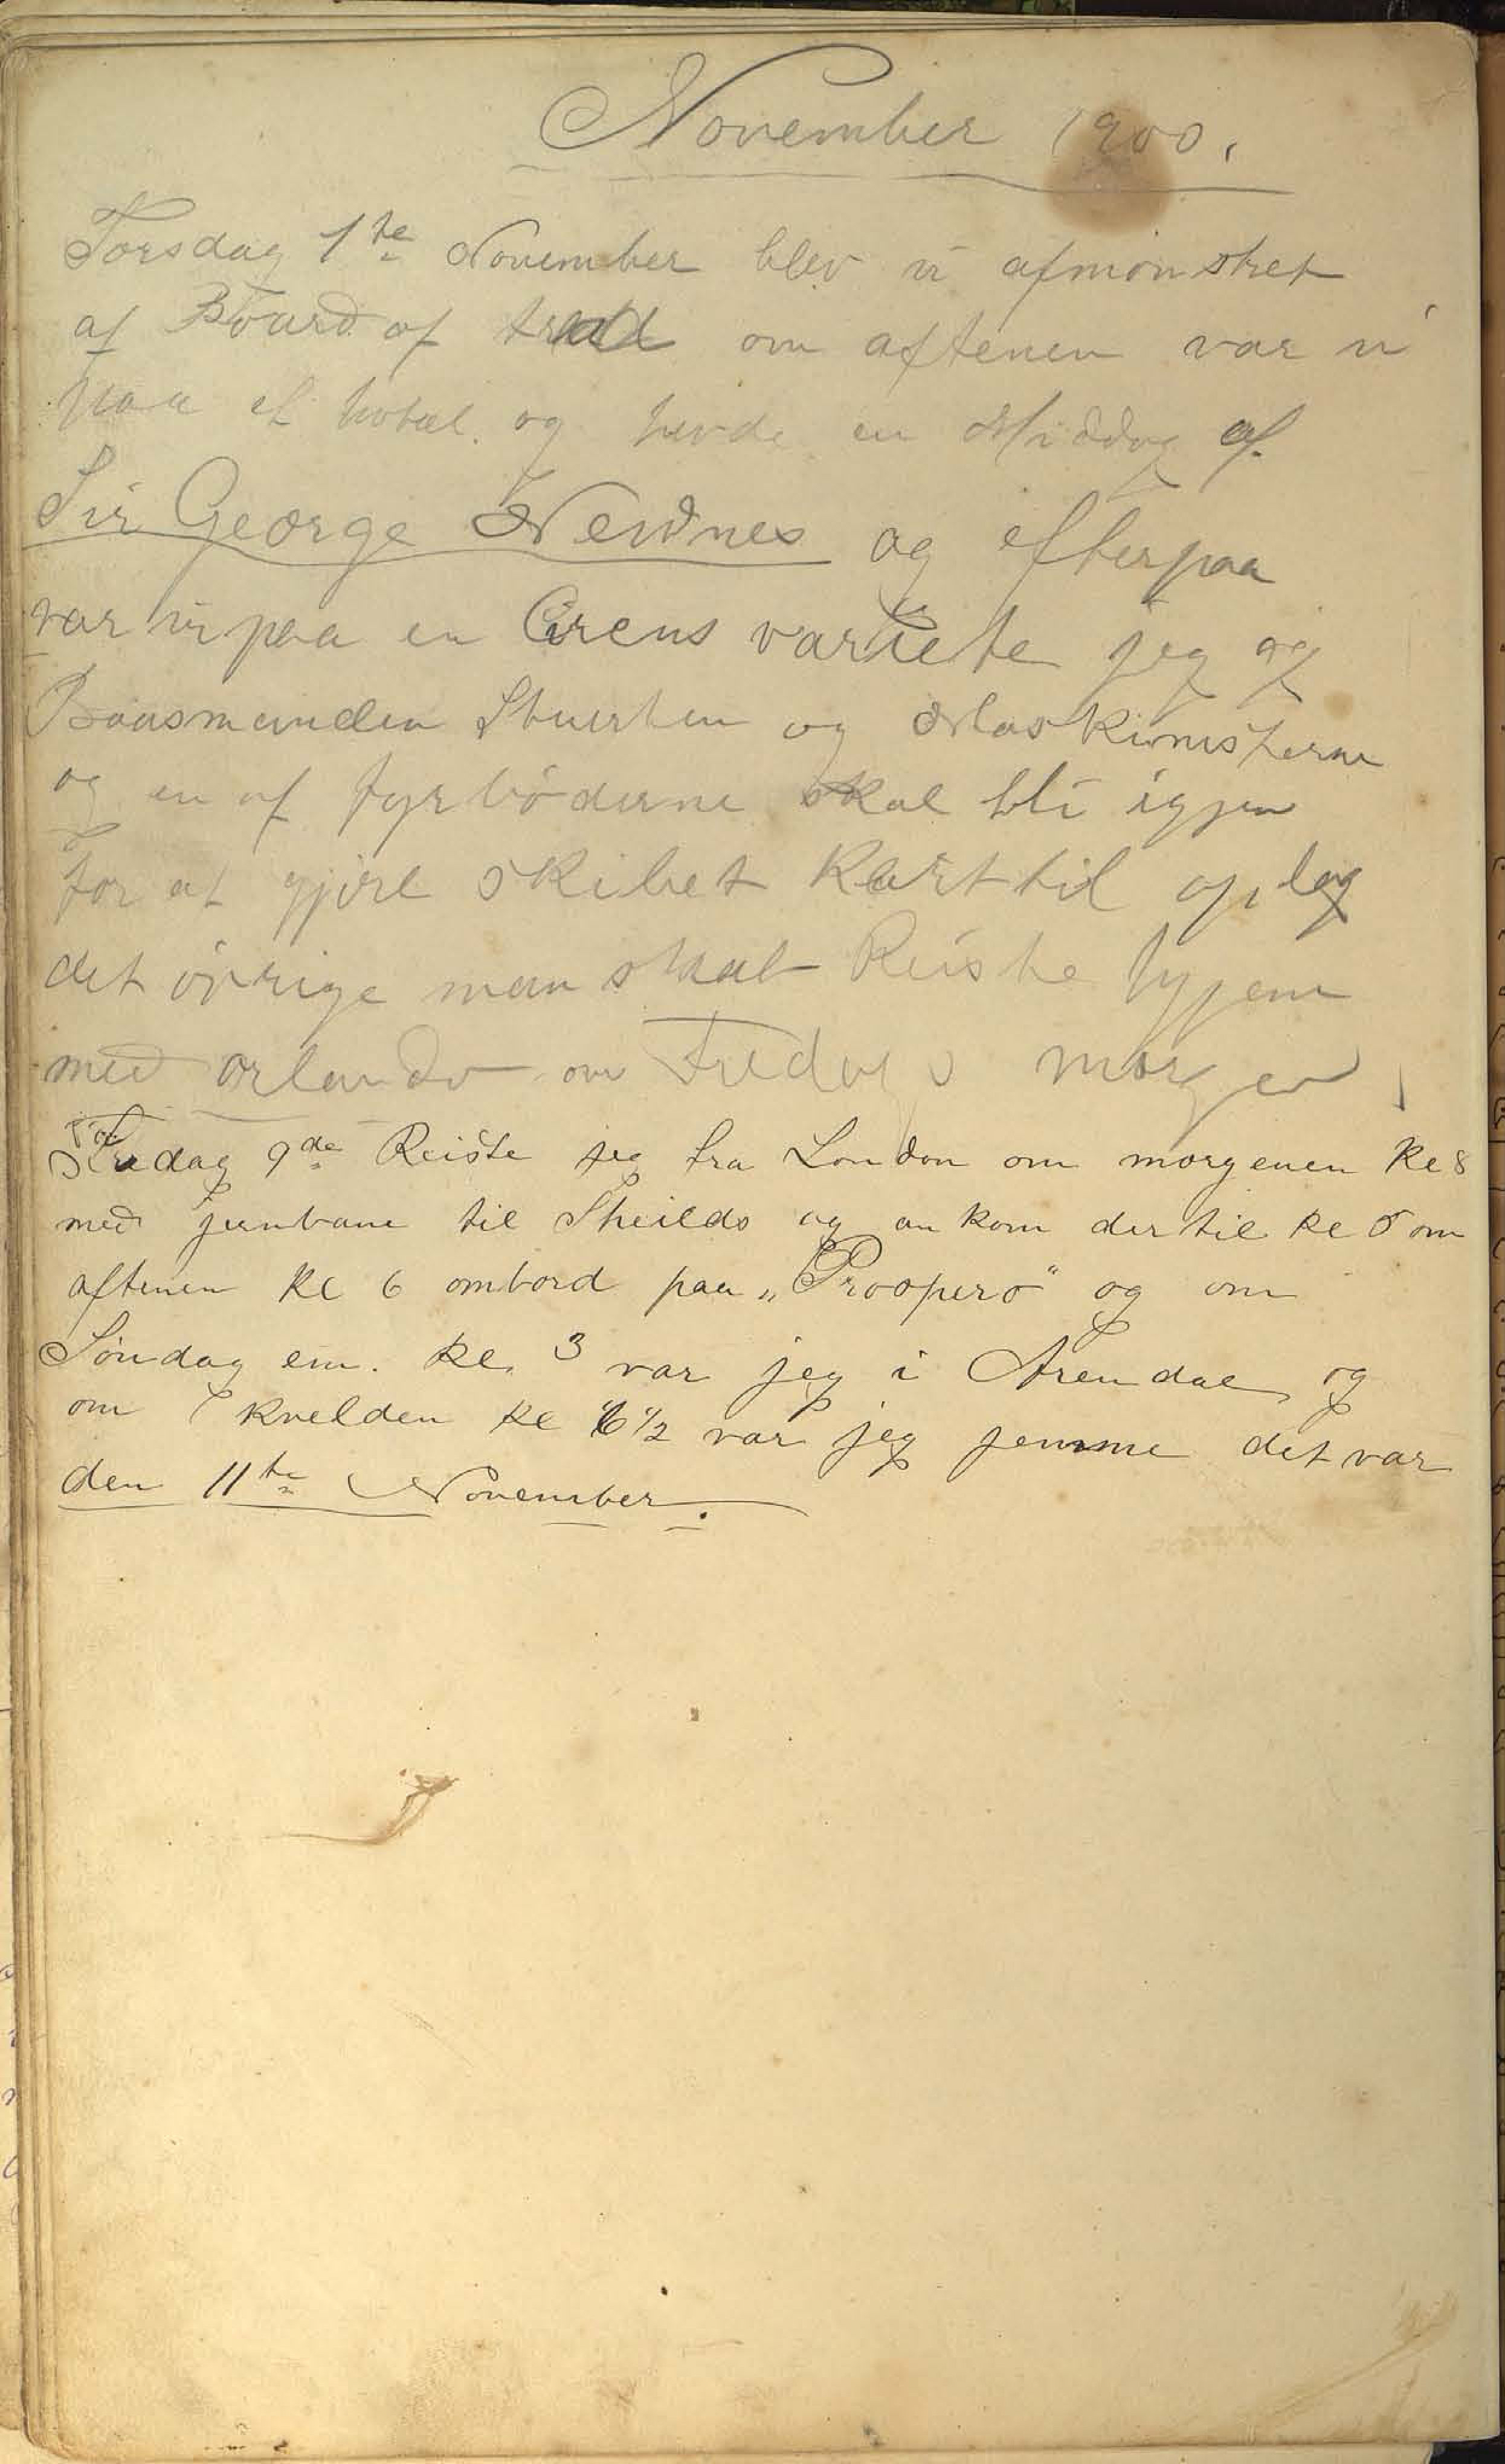 November 1900.
Torsdag 1te November blev vi afmönstret
af Board of trad om aftenen var vi
paa et hotel. og havde en Middag af.
Sir George Newnes og efterpaa
var vi paa en Circus variete jeg og
Baasmanden Stuerten og Maskinisterne
og en af fyrbøderne skal bli igjen
for at gjøre skibet klart til oplag
det øvrige manskab Reiste hjjem
med Orlando om Fredag s morgen
Fredag 9de Reiste jeg fra London om morgenen kl 8
med jernbane til Sheilds og an kom der til kl 5 om
aftenen kl 6 ombord paa „Prospero" og om
Söndag em. kl 3 var jeg i Arendal og
om kvelden kl 6 1/2 var jeg jemme det var
den 11te November.